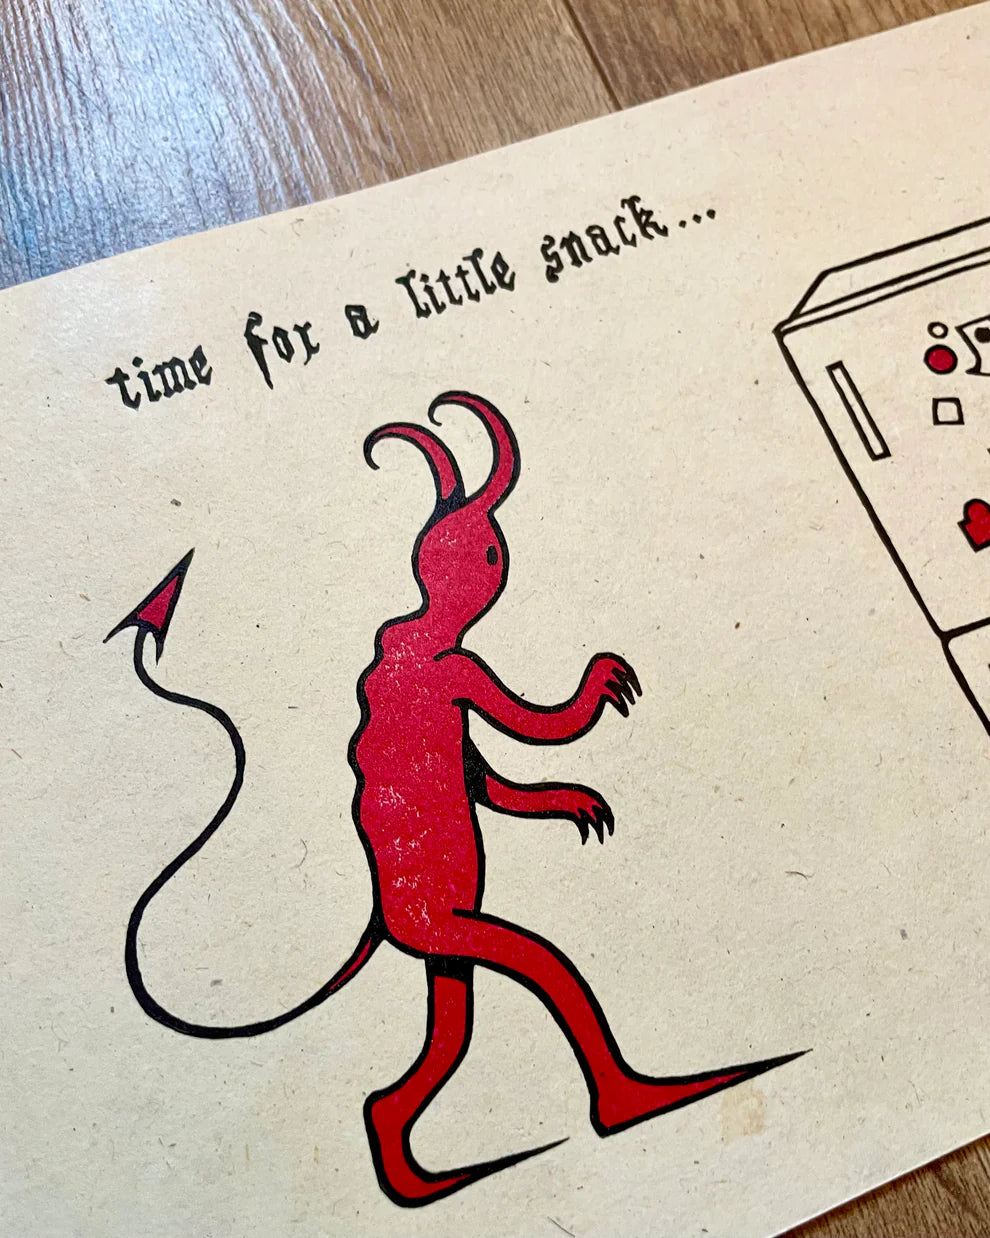 time for a little snack...